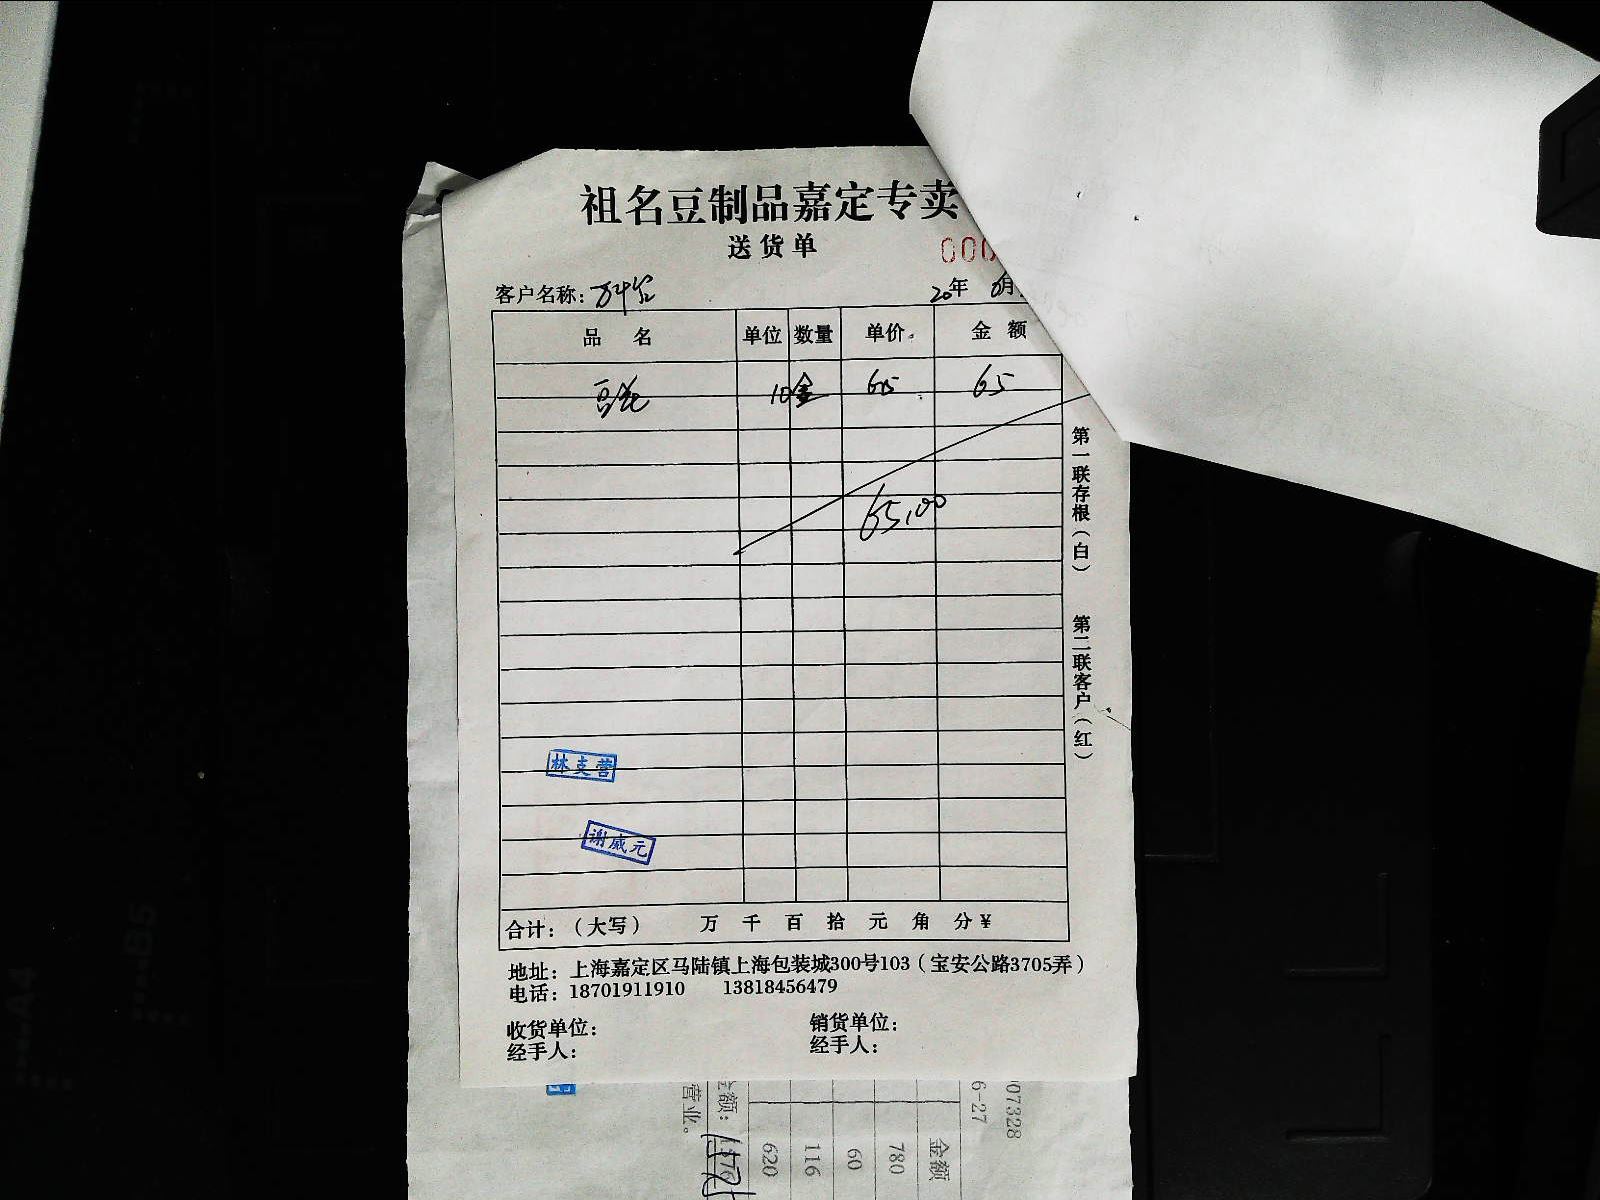 祖名豆制品嘉定专卖
送货单
000
客户名称：
20年 6月
品名 单位 数量 单价 金额
豆花 10盒 6.5 65
65.00
第一联存根（白） 第二联客户（红）
林支营
谢威元
合计：（大写） 万 千 百 拾 元 角 分 ¥
地址：上海嘉定区马陆镇上海包装城300号103（宝安公路3705弄）
电话：18701911910 13818456479
收货单位： 销货单位：
经手人： 经手人：
07328
6-27
金额
780
60
116
620
金额：
营业。